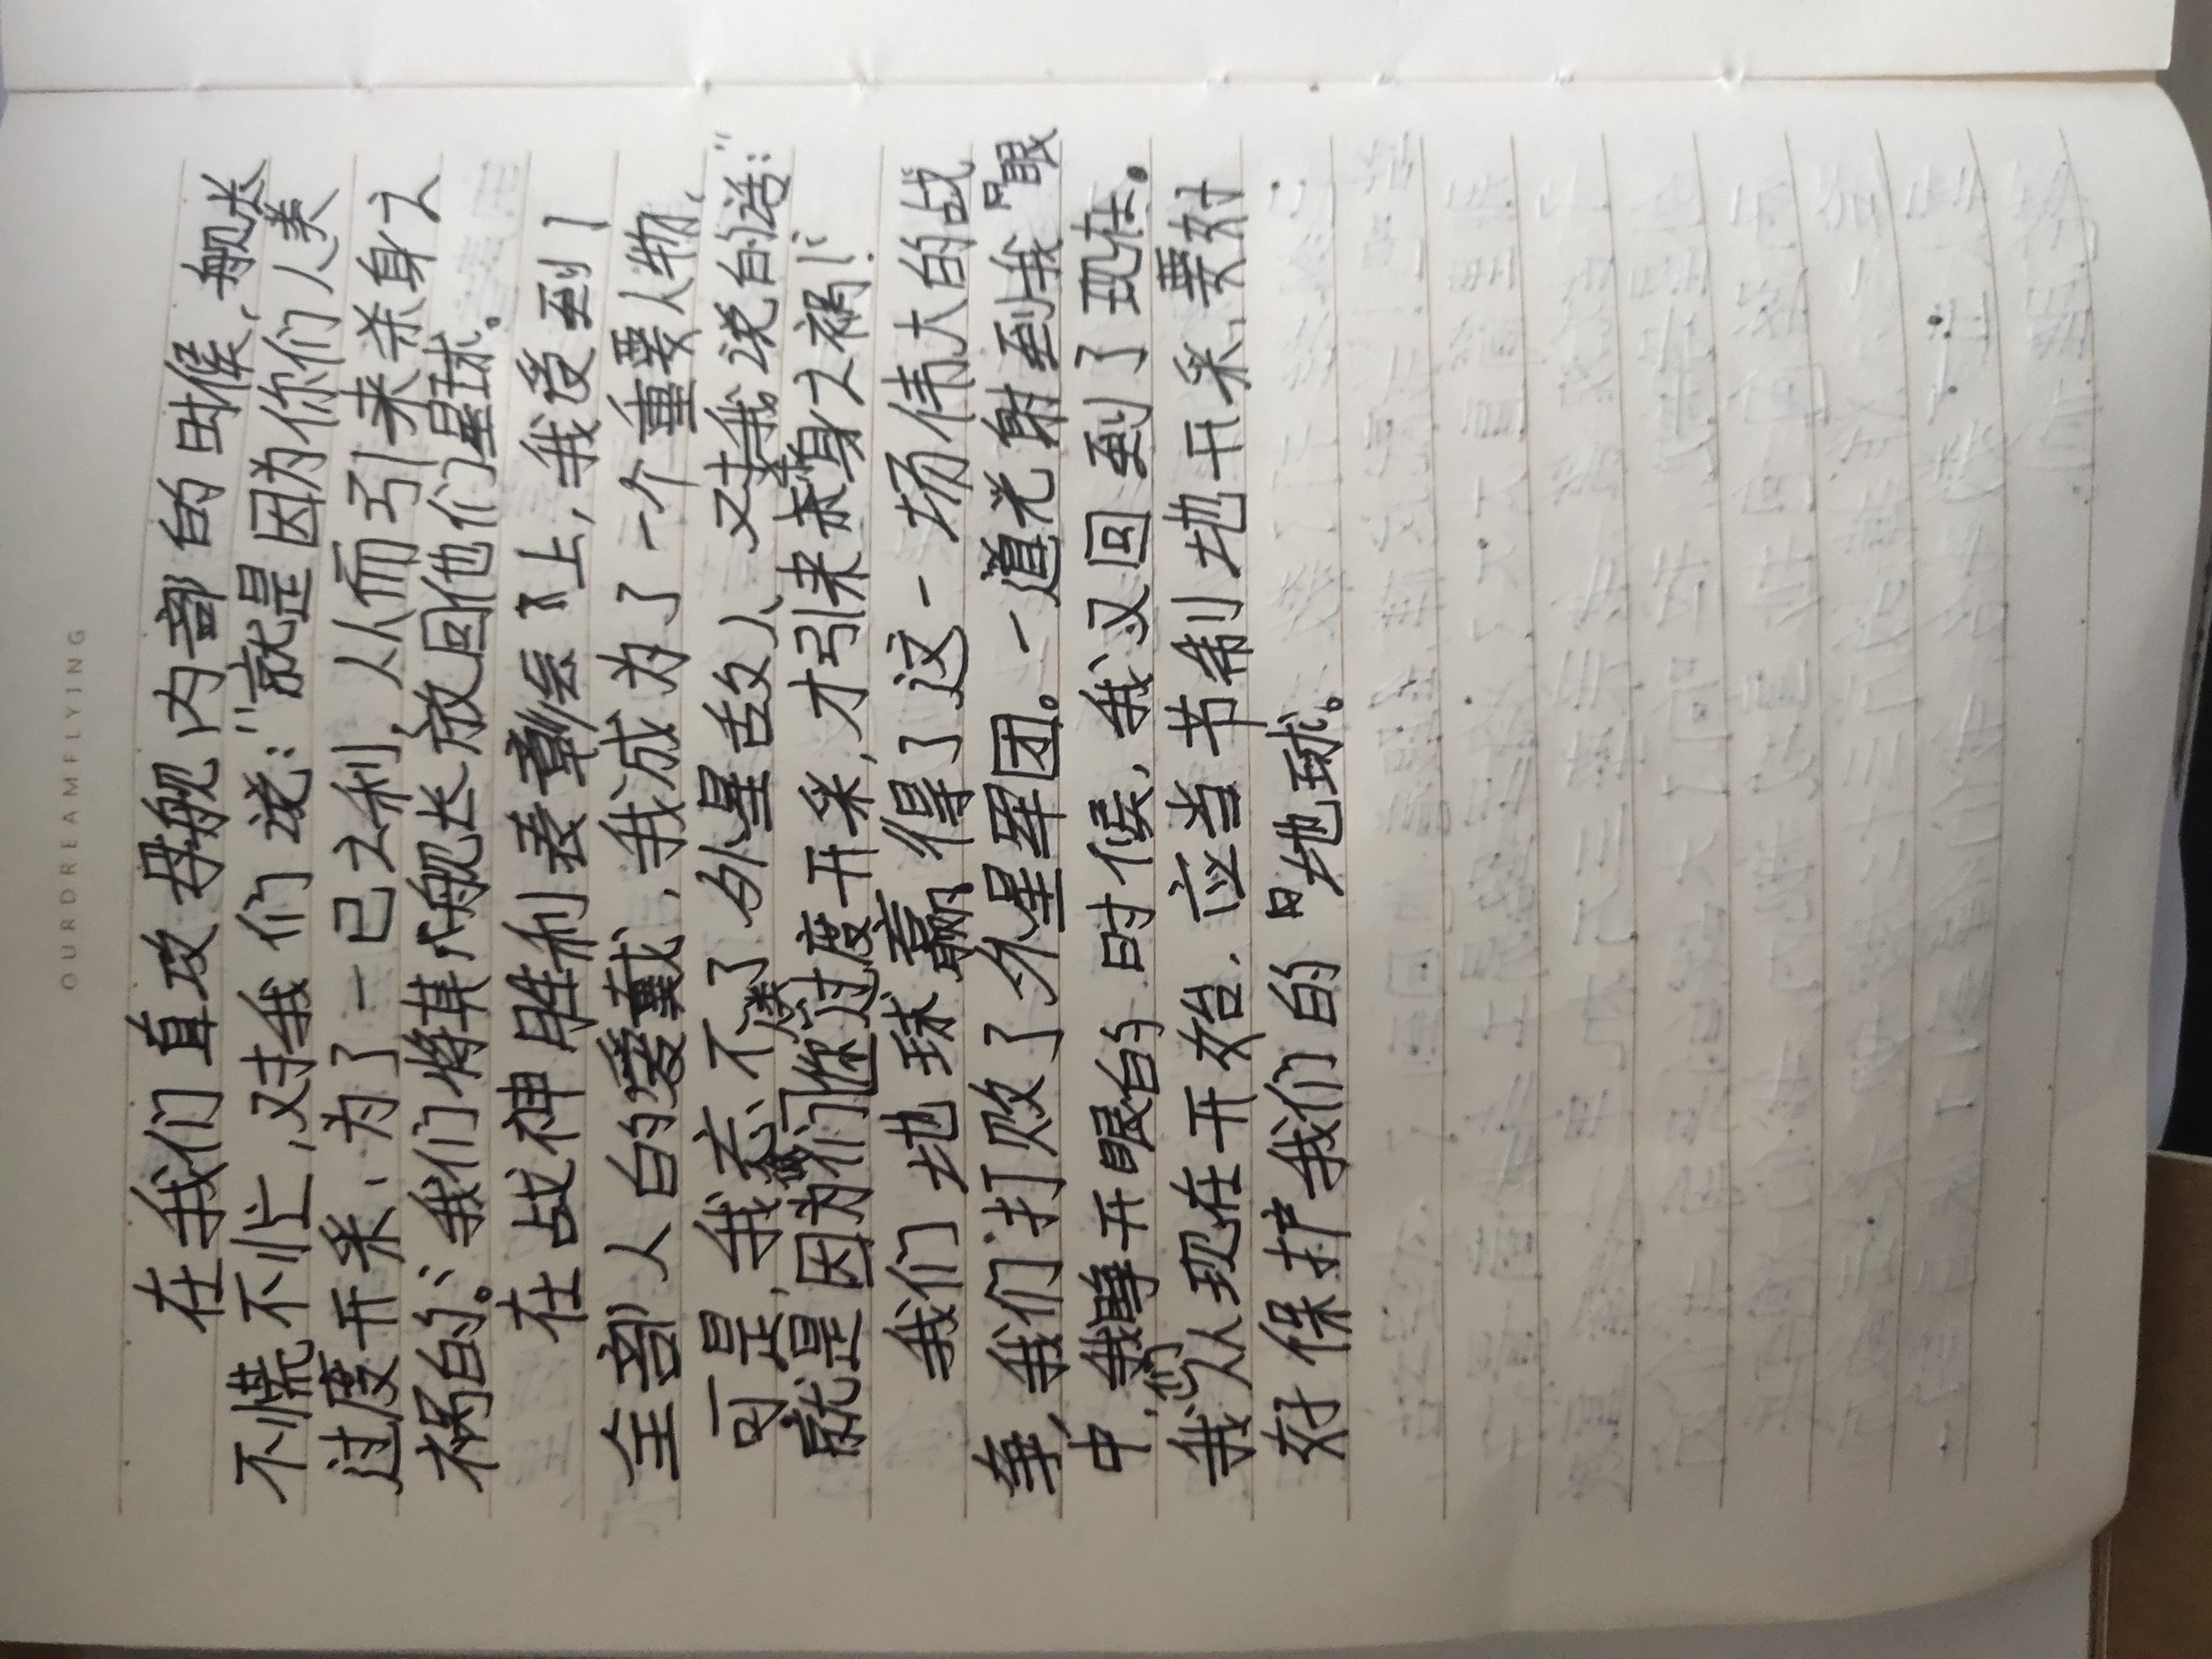 OURDREAMFLYING
在我们直攻母舰内部的时候，舰长
不慌不忙，对我们说：“就是因为你们人类
过度开采，为了一已之利，从而引来杀身之
祸的。”我们将其舰长放回他们星球。
在战神胜利表章会上，我受到了
全部人的爱戴，我成为了一个重要人物，
可是，我忘不了外星敌人对我说的话：“
就是因为你们人类过度开采，才引来杀身之祸！”
我们地球赢得了这一场伟大的战
争，我们打败了外星军团。一道光射到我眼
中，我睁开眼的时候，我又回到了现在。
我们从现在开始，应当节制地开采，要对
好保护我们的地球。